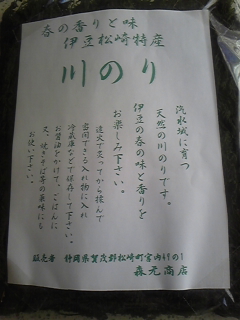 春の香りと味
伊豆松崎特産
川のり
汽水域に育つ
天然の川のりです。
伊豆の春の味と香りを
お楽しみ下さい。
遠火で炙ってから揉んで
密閉できる入れ物に入れ
冷蔵庫などで保存して下さい。
お醤油をかけて、ごはんに
又、焼きそば等の薬味にも
お使い下さい。
販売者 静岡県賀茂郡松崎町宮内
森元商店